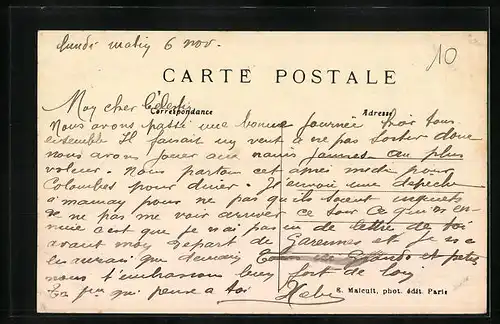 Lundi matin 6 nov.
10
CARTE POSTALE
Correspondance
Adresse
Mon cher Célestin
Nous avons passé une bonne journée hier tous
ensemble Il faisait un vent a ne pas sortir donc
nous avons jouer aux nains jaunes au plus
voleur. Nous partons cet après midi pour
Colombes pour diner. J'envoie une depeche
a maman pour ne pas qu'ils soient inquiets
de ne pas me voir arriver ce soir Ce qui m'en-
nuie c'est que je n'ai pas eu de lettre de toi
avant mon depart de Garennes et je n'e
en aurai que demain et petits
nous t'embrassons bien fort de loin
Ta qui pense a toi
E. Malcuit, phot. édit. Paris